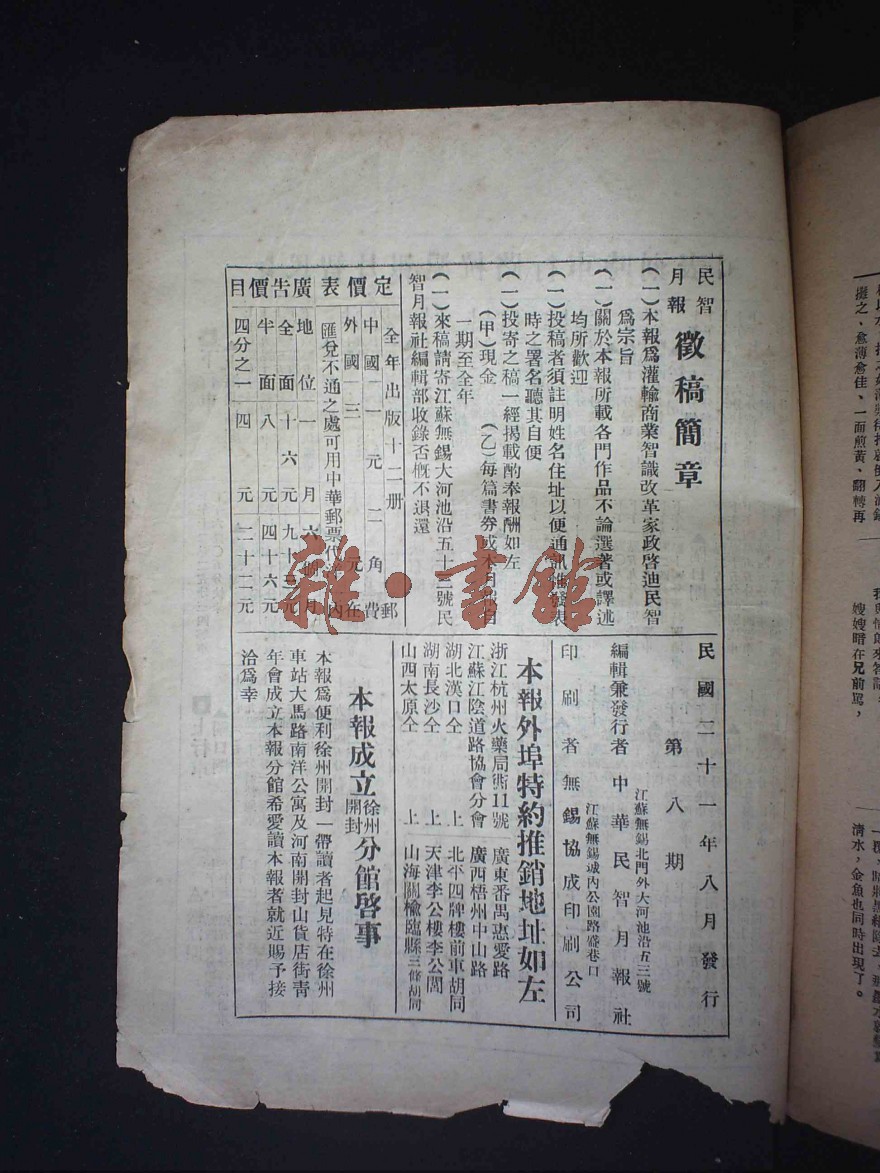 民智月報 徵稿簡章
(一)本報爲灌輸商業智識改革家政啓迪民智
爲宗旨
(一)關於本報所載各門作品不論選著或譯述
均所歡迎
(一)投稿者須註明姓名住址以便通訊惟發表
時之署名聽其自便
(一)投寄之稿一經揭載酌奉報酬如左
(甲)現金 (乙)每篇書券或本月報自
一期至全年
(一)來稿請寄江蘇無錫大河池沿五十三號民
智月報社編輯部收錄否概不退還
定價表
全年出版十二册
中國一元二角郵費
外國三元在內
匯兌不通之處可用中華郵票代
廣告價目
地位 一月 六個月
全面 十六元 九十二元
半面 八元 四十六元
四分之一 四元 二十二元
民國二十一年八月發行
第八期
江蘇無錫北門外大河池沿五三號
編輯兼發行者 中華民智月報社
江蘇無錫城內公園路盛巷口
印刷者 無錫協成印刷公司
本報外埠特約推銷地址如左
浙江杭州火藥局衖11號 廣東番禺惠愛路
江蘇江陰道路協會分會 廣西梧州中山路
湖北漢口仝上 北平四牌樓前車胡同
湖南長沙仝上 天津李公樓李公閣
山西太原仝上 山海關榆臨縣三條胡同
本報成立徐州開封分館啓事
本報爲便利徐州開封一帶讀者起見特在徐州
車站大馬路南洋公寓及河南開封山貨店街靑
年會成立本報分館希愛讀本報者就近賜予接
洽爲幸
雜·書館
攤之、愈薄愈佳、一面煎黃、翻轉再
嫂嫂暗在兄前罵，
清水，金魚也同時出現了。